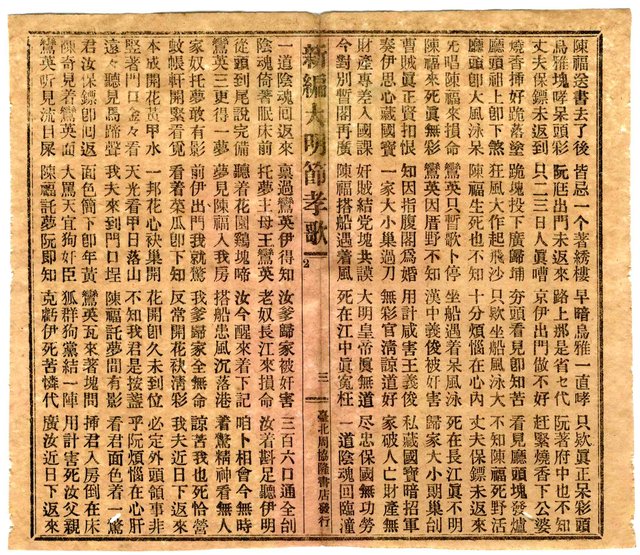 陳福送書去了後 皆忌一个著綉樓 早暗烏雅一直哮 只欵眞正呆彩頭
烏雅塊哮呆頭彩 阮迋出門未返來 路上那是省乜代 阮著府中也不知
丈夫保鏢未返到 只二三日人眞嘈 京伊出門做不好 趕緊燒香下公婆
燒香挿好跪落塗 跪塊投下廣歸埔 夯頭看見卽知苦 看見廳頭塊發爐
廳頭祖上卽下煞 狂風大作起飛沙 只欵坐船風泳大 不知陳福死野活
廳頭卽大風泳呆 陳福生死也不知 十分煩惱在心內 丈夫保鏢未返來
死唱陳福來損命 鸞英只暫歌卜停 坐船遇着呆風泳 死在長江眞不明
陳福來死眞無彩 鸞英因厝野不知 漢中義俊被奸害 歸家大小期巢刣
曹賊眞正賣扣恨 知因指腹閣爲婚 用計咸害王義俊 私藏國寶暗招軍
奏伊思心藏國寶 一家大小巢過刀 無彩官淸諒道好 家破人亡財產無
財產專差入國課 奸賊結党塊共謀 大明皇帝眞無道 尽忠保國無功勞
今對別暫閣再廣 陳福搭船遇着風 死在江中眞冤枉 一道陰魂回臨潼
新編大明節孝歌 2 三 臺北周協隆書店發行
一道陰魂回返來 稟過鸞英伊得知 汝爹歸家被奸害 三百六口通全刣
陰魂倚著眠床前 托夢主母王鸞英 老奴長江來損命 汝着斟足聽伊明
從頭到尾說完備 聽着花園鷄塊啼 汝今醒來着下記 咱卜相會今無時
鸞英三更得一夢 夢見陳福入我房 搭船患風沉落港 着驚精神看無人
家奴托夢敢有影 前伊出門我就驚 我爹歸家全無命 諒苦我也死恰營
蚊帳軒開緊看覓 看着菜瓜卽下知 反常開花秧淸彩 我夫近日下返來
本成開花黃甲水 一邦花心袂巢開 花開卽久未到位 必定外頭領事非
堅著門口金々看 天光看甲日落山 不知我君是按盞 乎阮煩惱在心肝
遠々聽見馬蹄聲 我夫來到門口埕 陳福託夢間有影 看君面色着一驚
君汝保鏢卽回返 面色簡下卽年黃 鸞英瓦來著塊問 挿君入房倒在床
陳奇見着鸞英面 大罵天宜狗奸臣 狐群狗黨結一陣 用計害死汝父親
鸞英听見流目屎 陳福託夢阮卽知 克虧伊死苦憐代 廣汝近日下返來